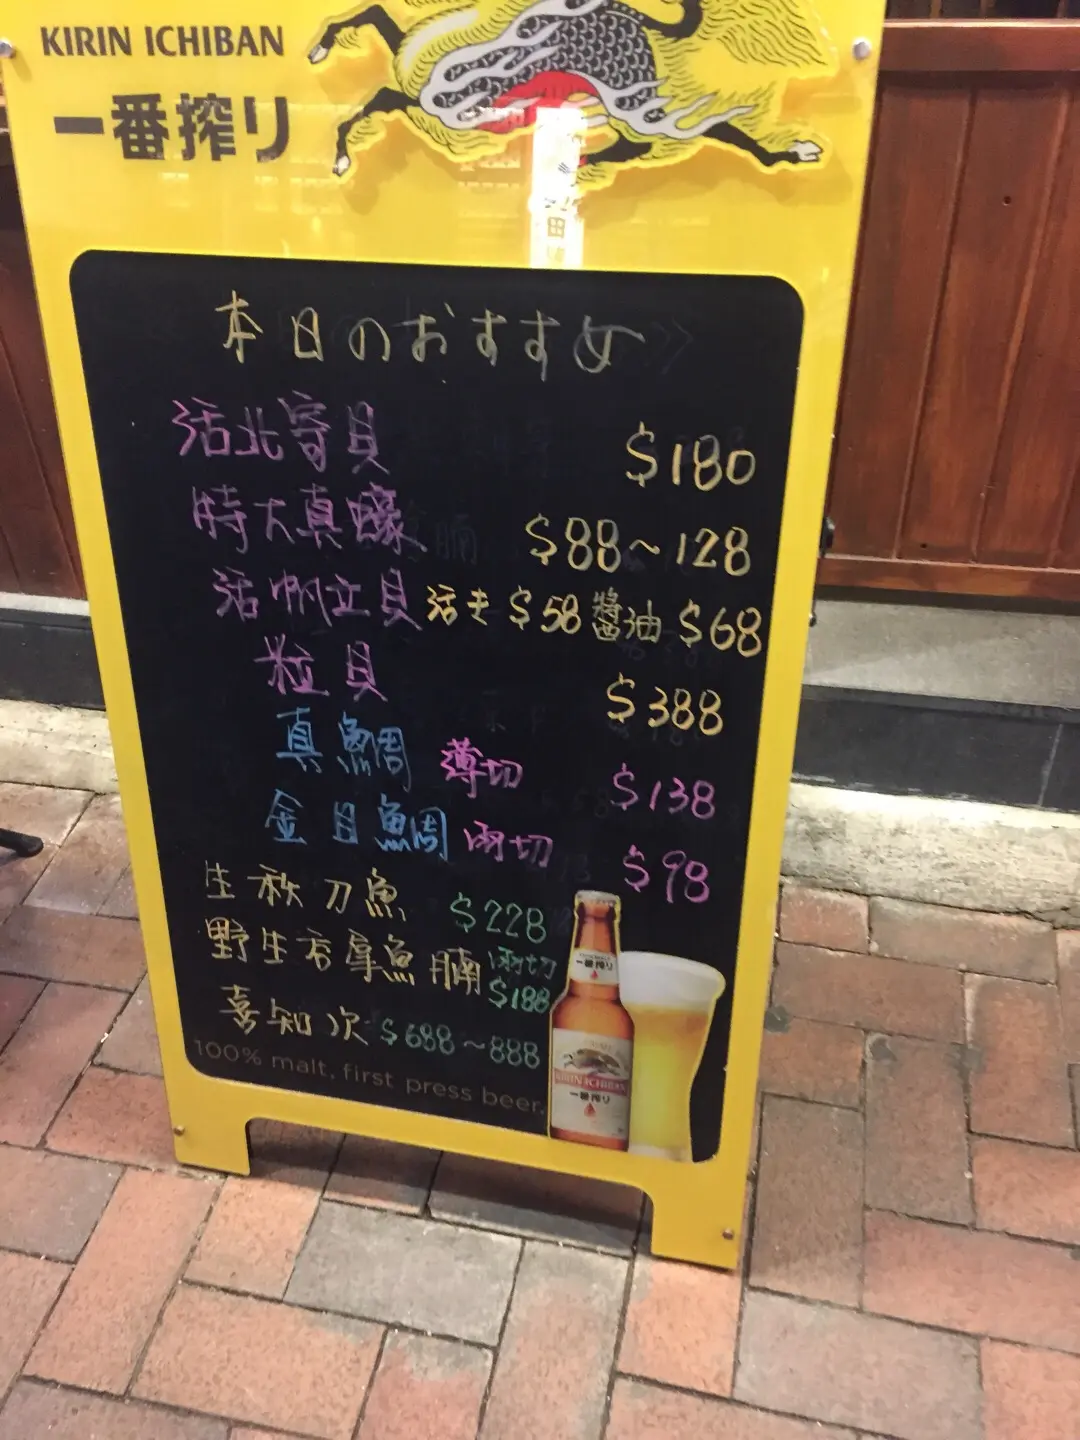 KIRIN ICHIBAN
一番搾り
本日のおすすめ
活北寄貝 $180
特大真蠔 $88~128
活帆立貝 活夫 $58 醬油 $68
粒貝 $388
真鯛 薄切 $138
金目鯛 兩切 $98
生秋刀魚 $228
野生吞拿魚腩 兩切 $188
喜知次 $688~888
100% malt, first press beer.
一番搾り
KIRIN ICHIBAN
一番搾り